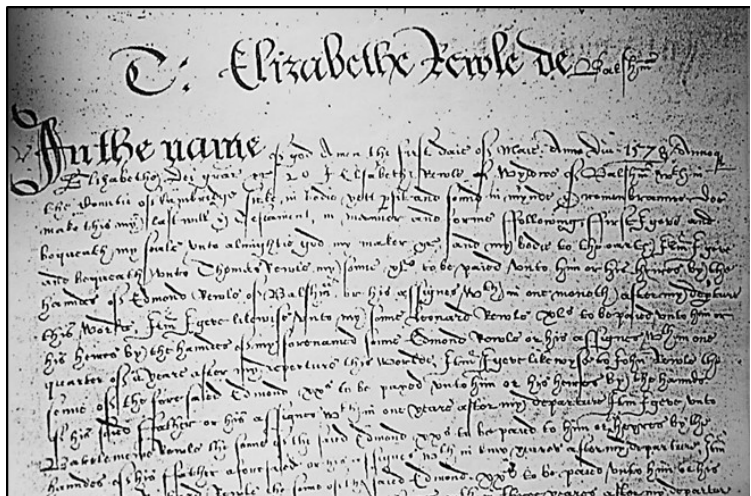 T: Elizabethe Rewle de Balshm
In the name of god Amen the first daie of Maie. Anno Dni 1578 Anno
Elizabethe Dei grae 20 I Elsabethe Rewle of Wydowe of Balshm wthin
the Countie of Cambridge sicke in bodie yett psit and sound in mynde & remembrannce doe
make this my last will & testament, in manner and forme ffollowing, first I geve and
bequeath my soule vnto almightie god my maker &c, and my bodie to the earth, Itm I geve
and bequeath vnto Thomas Rewle my sonne xls to be paied vnto him or his heires by the
handes of Edmond Rewle of Balshm, or his assignes wthin one moneth after my depture
this worlde, Itm I geve likewise vnto my sonne Leonard Rewle xls to be paied vnto him or
his heires by the handes of my forenamed sonne Edmond Rewle or his assignes wthin one
quarter of a yeare after my departure this worlde, Itm I geve likewyse to John Rewle the
sonne of the fore saied Edmond xxs to be payed vnto him or his heires by the handes
of his said father or his assignes wthin one yeare after my departure Itm I geve vnto
Bartelmewe Rewle the sonne of the said Edmond xxs to be paied to him or heyres by the
handes of his ffather aforesaid or his assignes wthin two yeares after my departure Itm
Rewle the sonne of the saied Edmond xxs to be paied vnto him or his
yeares after my departur